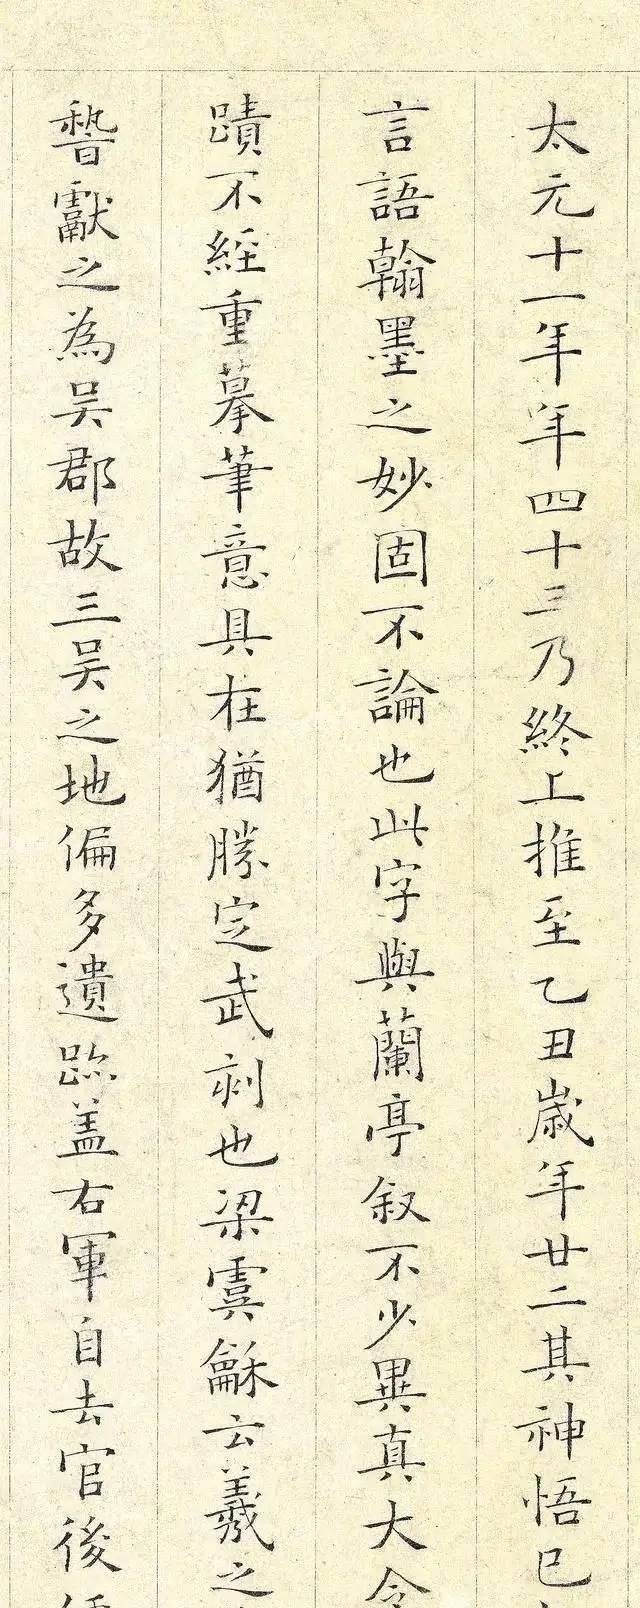 太元十一年年四十三乃終上推至乙丑歲年廿二其神悟已
言語翰墨之妙固不論也此字與蘭亭叙不少異真大令
蹟不經重摹筆意具在猶勝定武刻也梁虞龢云羲之
㫼獻之為吴郡故三吴之地偏多遺跡盖右軍自去官後